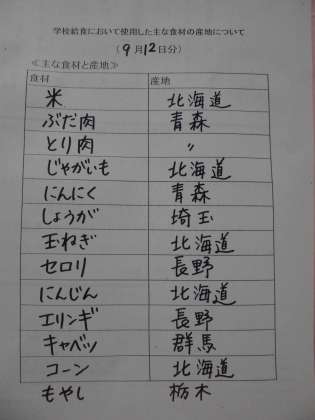 学校給食において使用した主な食材の産地について
(9月12日分)
≪主な食材と産地≫
食材 産地
米 北海道
ぶた肉 青森
とり肉 〃
じゃがいも 北海道
にんにく 青森
しょうが 埼玉
玉ねぎ 北海道
セロリ 長野
にんじん 北海道
エリンギ 長野
キャベツ 群馬
コーン 北海道
もやし 栃木